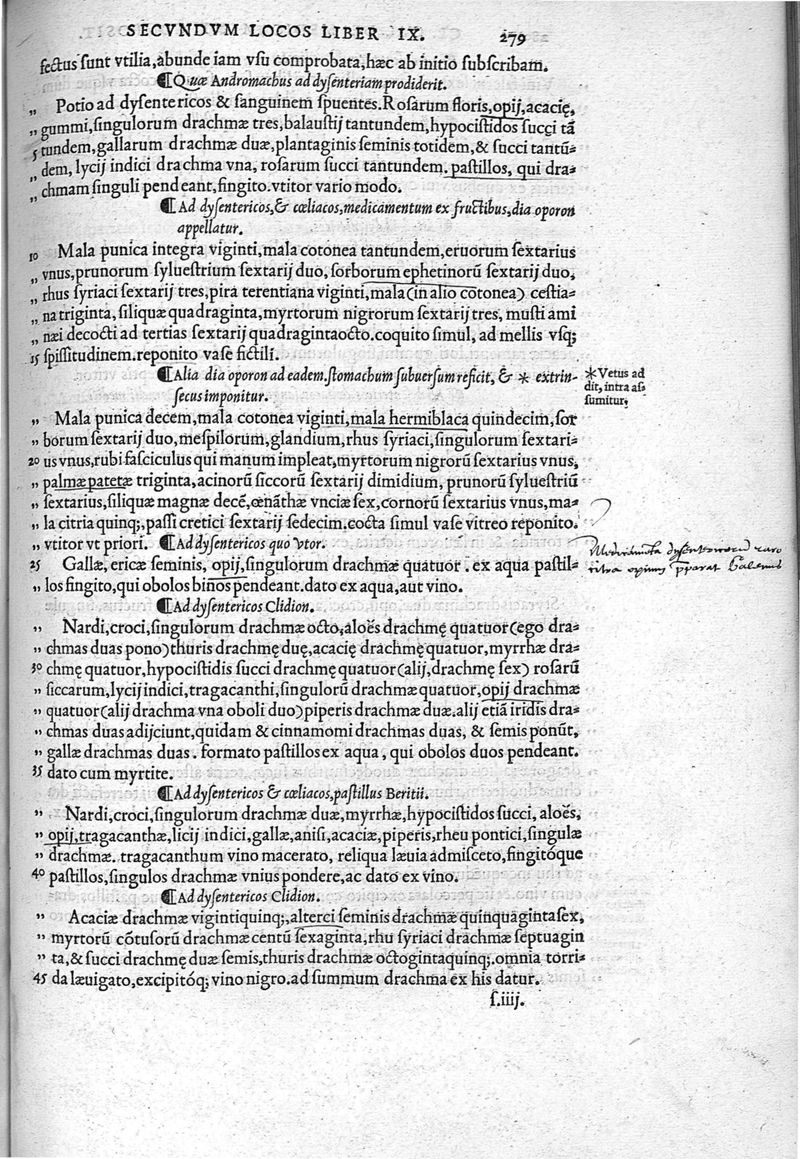 SECVNDVM LOCOS LIBER IX. 279
fectus sunt vtilia, abunde iam vsu comprobata, hæc ab initio subscribam.
¶ Quæ Andromachus ad dysenteriam prodiderit.
„ Potio ad dysentericos & sanguinem spuentes. Rosarum floris, opij, acacię,
„ gummi, singulorum drachmæ tres, balaustij tantundem, hypocistidos succi tā
5 tundem, gallarum drachmæ duæ, plantaginis seminis totidem, & succi tantū=
„ dem, lycij indici drachma vna, rosarum succi tantundem. pastillos, qui dra=
„ chmam singuli pendeant, fingito. vtitor vario modo.
¶ Ad dysentericos, & cœliacos, medicamentum ex fructibus, dia oporon
appellatur.
10 Mala punica integra viginti, mala cotonea tantundem, eruorum sextarius
„ vnus, prunorum syluestrium sextarij duo, sorborum ephetinorū sextarij duo,
„ rhus syriaci sextarij tres, pira terentiana viginti, mala (in alio cotonea) cestia=
„ na triginta, siliquæ quadraginta, myrtorum nigrorum sextarij tres, musti ami
„ næi decocti ad tertias sextarij quadragintaocto. coquito simul, ad mellis vsq;
15 spissitudinem. reponito vase fictili.
¶ Alia dia oporon ad eadem. stomachum subuersum reficit, & * extrin=
secus imponitur.
* Vetus ad
dit, intra as
sumitur;
„ Mala punica decem, mala cotonea viginti, mala hermiblaca quindecim, sor
„ borum sextarij duo, mespilorum, glandium, rhus syriaci, singulorum sextari=
20 us vnus, rubi fasciculus qui manum impleat, myrtorum nigrorū sextarius vnus,
„ palmæ patetæ triginta, acinorū siccorū sextarij dimidium, prunorū syluestriū
„ sextarius, siliquæ magnæ decē, œnāthæ vnciæ sex, cornorū sextarius vnus, ma=
„ la citria quinq;, passi cretici sextarij sedecim. cocta simul vase vitreo reponito.
„ vtitor vt priori. ¶ Ad dysentericos quo vtor.
25 Gallæ, ericæ seminis, opij, singulorum drachmæ quatuor. ex aqua pastil=
„ los fingito, qui obolos binos pendeant. dato ex aqua, aut vino.
raro
opium præparat Galenus
¶ Ad dysentericos Clidion.
„ Nardi, croci, singulorum drachmæ octo, aloës drachmę quatuor (ego dra=
„ chmas duas pono) thuris drachmę duę, acacię drachmę quatuor, myrrhæ dra=
30 chmę quatuor, hypocistidis succi drachmę quatuor (alij, drachmę sex) rosarū
„ siccarum, lycij indici, tragacanthi, singulorū drachmæ quatuor, opij drachmæ
„ quatuor (alij drachma vna oboli duo) piperis drachmæ duæ. alij etiā iridis dra=
„ chmas duas adijciunt, quidam & cinnamomi drachmas duas, & semis ponūt,
„ gallæ drachmas duas. formato pastillos ex aqua, qui obolos duos pendeant.
35 dato cum myrtite.
¶ Ad dysentericos & cœliacos, pastillus Beritii.
„ Nardi, croci, singulorum drachmæ duæ, myrrhæ, hypocistidos succi, aloës,
„ opij, tragacanthæ, licij indici, gallæ, anisi, acaciæ, piperis, rheu pontici, singulæ
„ drachmæ. tragacanthum vino macerato, reliqua læuia admisceto, fingitóque
40 pastillos, singulos drachmæ vnius pondere, ac dato ex vino.
¶ Ad dysentericos Clidion.
„ Acaciæ drachmæ vigintiquinq;, alterci seminis drachmæ quinquagintasex,
„ myrtorū cōtusorū drachmæ centū sexaginta, rhu syriaci drachmæ septuagin
„ ta, & succi drachmę duæ semis, thuris drachmæ octogintaquinq;. omnia torri=
45 da læuigato, excipitóq; vino nigro. ad summum drachma ex his datur.
f.iiij.